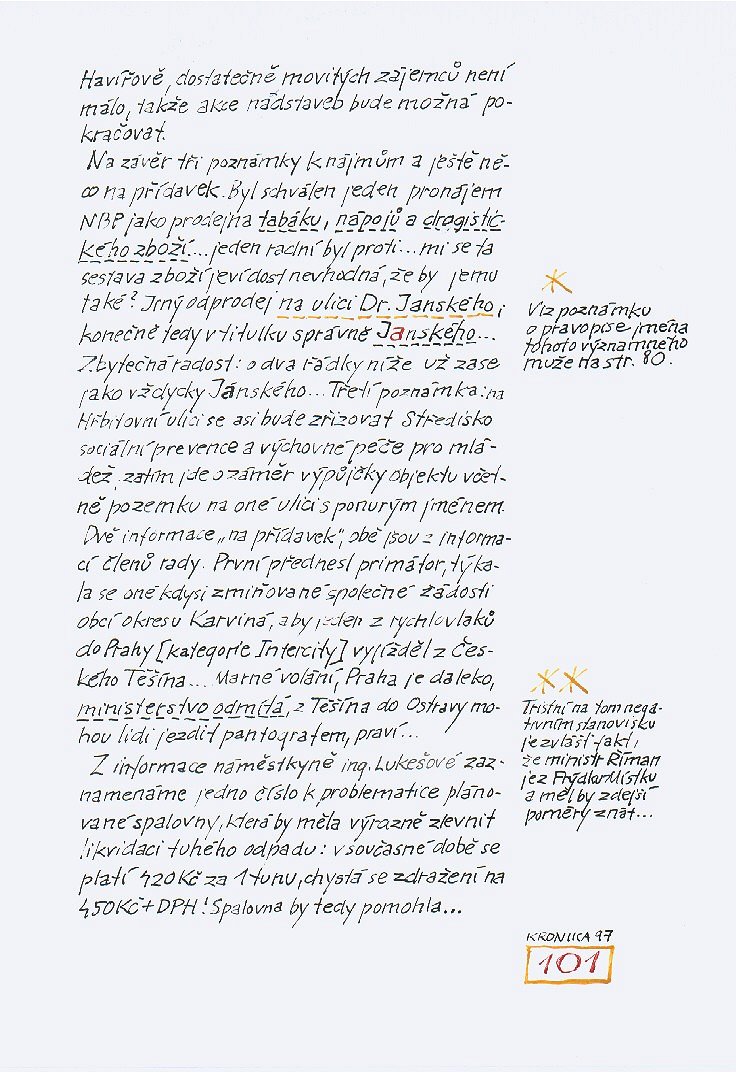 Havířově, dostatečně movitých zájemců není
málo, takže akce nádstaveb bude možná po-
kračovat.
Na závěr tři poznámky k nájmům a ještě ně-
co na přídavek. Byl schválen jeden pronájem
NBP jako prodejna tabáku, nápojů a drogistic-
kého zboží... jeden radní byl proti... mi se ta
sestava zboží jeví dost nevhodná, že by jemu
také? Jiný odprodej na ulici Dr. Janského,
konečně tedy v titulku správně Janského...
Zbytečná radost: o dva řádky níže už zase
jako vždycky Jánského... Třetí poznámka: na
Hřbitovní ulici se asi bude zřizovat Středisko
sociální prevence a výchovné péče pro mlá-
dež, zatím jde o záměr výpůjčky objektu včet-
ně pozemku na oné ulici s ponurým jménem.
Dvě informace „na přídavek", obě jsou z informa-
cí členů rady. První přednesl primátor, týka-
la se oné kdysi zmiňované společné žádosti
obcí okresu Karviná, aby jeden z rychlovlaků
do Prahy [kategorie Intercity] vyjížděl z Čes-
kého Těšína... Marné volání, Praha je daleko,
ministerstvo odmítá, z Těšína do Ostravy mo-
hou lidi jezdit pantografem, praví...
Z informace náměstkyně ing. Lukešové zaz-
namenáme jedno číslo k problematice pláno-
vané spalovny, která by měla výrazně zlevnit
likvidaci tuhého odpadu: v současné době se
platí 420 Kč za 1 tunu, chystá se zdražení na
450 Kč + DPH! Spalovna by tedy pomohla...
*
Viz poznámku
o pravopise jména
tohoto významného
muže na str. 80.
**
Tristní na tom nega-
tivním stanovisku
je zvlášť fakt,
že ministr Říman
je z Frýdku-Místku
a měl by zdejší
poměry znát...
KRONIKA 97
101